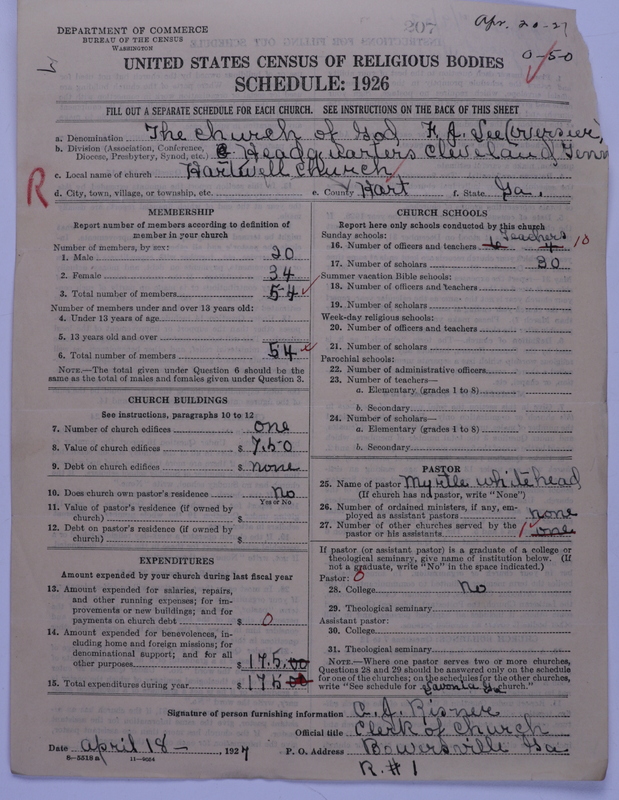 207
Apr. 20-27
DEPARTMENT OF COMMERCE
BUREAU OF THE CENSUS
WASHINGTON
0-50
UNITED STATES CENSUS OF RELIGIOUS BODIES
SCHEDULE: 1926
FILL OUT A SEPARATE SCHEDULE FOR EACH CHURCH. SEE INSTRUCTIONS ON THE BACK OF THIS SHEET
a. Denomination The church of God, F. J. Lee (Overseer,
b. Division (Association, Conference, Diocese, Presbytery, Synod, etc.) Headquarters Cleveland, Tenn
c. Local name of church Hartwell Church
R
d. City, town, village, or township, etc. e. County Hart f. State Ga.
MEMBERSHIP
Report number of members according to definition of member in your church
Number of members, by sex:
1. Male 20
2. Female 34
3. Total number of members 54
Number of members under and over 13 years old:
4. Under 13 years of age
5. 13 years old and over
6. Total number of members 54
NOTE.—The total given under Question 6 should be the same as the total of males and females given under Question 3.
CHURCH BUILDINGS
See instructions, paragraphs 10 to 12
7. Number of church edifices one
8. Value of church edifices $ 750
9. Debt on church edifices $ none
10. Does church own pastor's residence No
Yes or No
11. Value of pastor's residence (if owned by church) $
12. Debt on pastor's residence (if owned by church) $
EXPENDITURES
Amount expended by your church during last fiscal year
13. Amount expended for salaries, repairs, and other running expenses; for improvements or new buildings; and for payments on church debt $ 0
14. Amount expended for benevolences, including home and foreign missions; for denominational support; and for all other purposes $ 175.00
15. Total expenditures during year $ 175 00
CHURCH SCHOOLS
Report here only schools conducted by this church
Sunday schools: Teachers
16. Number of officers and teachers 6 4 10
17. Number of scholars 30
Summer vacation Bible schools:
18. Number of officers and teachers
19. Number of scholars
Week-day religious schools:
20. Number of officers and teachers
21. Number of scholars
Parochial schools:
22. Number of administrative officers
23. Number of teachers—
a. Elementary (grades 1 to 8)
b. Secondary
24. Number of scholars—
a. Elementary (grades 1 to 8)
b. Secondary
PASTOR
25. Name of pastor Myrtle Whitehead
(If church has no pastor, write "None")
26. Number of ordained ministers, if any, employed as assistant pastors none
27. Number of other churches served by the pastor or his assistants 1 one
If pastor (or assistant pastor) is a graduate of a college or theological seminary, give name of institution below. (If not a graduate, write "No" in the space indicated.)
Pastor: 0
28. College No
29. Theological seminary
Assistant pastor:
30. College
31. Theological seminary
NOTE.—Where one pastor serves two or more churches, Questions 28 and 29 should be answered only on the schedule for one of the churches; on the schedules for the other churches, write "See schedule for Lavonia Ga church."
Signature of person furnishing information C. J. Risner
Official title Clerk of Church
Date April 18 — , 1927 P. O. Address Bowersville Ga
8-5518a 11-9024
R. #1